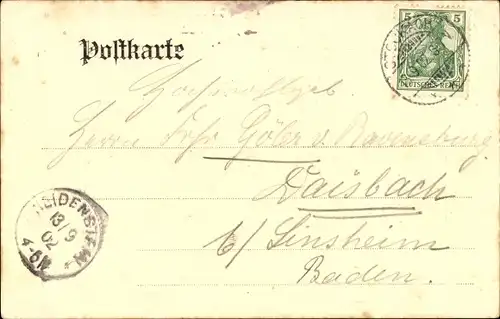 Postkarte
5 5
DEUTSCHES REICH
Hochwohlgeb.
Herrn Frhr Göler v. Ravensburg
Daisbach
b/ Sinsheim
Baden.
NEIDENSTEIN
13/9
02
4-5N